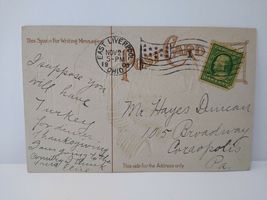 This Space For Writing Messages
EAST LIVERPOOL
NOV 21
5-PM
19
OHIO
I suppose you
will have
Turkey
for dinner
Thanksgiving
I am going to the
country I think
Mr Hayes Duncan
1015 Broadway
Coraopolis
Pa.
This side for the Address only